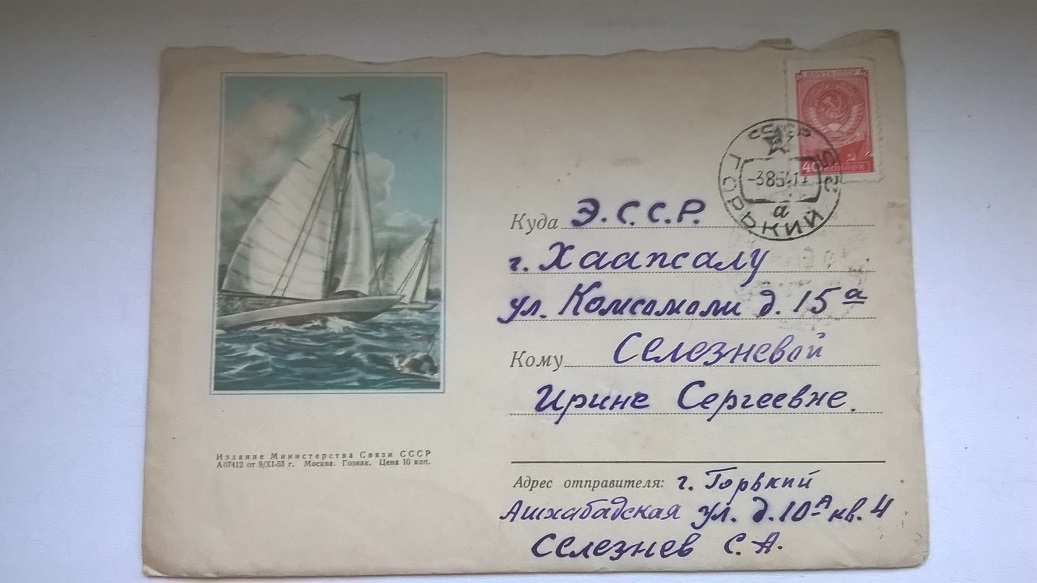 ПОЧТА СССР
40 КОПЕЕК
СССР
-3854.11
а
ГОРЬКИЙ
Куда Э.С.С.Р.
г. Хаапсалу
ул. Комсомоли д. 15а
Кому Селезневой
Ирине Сергеевне.
Издание Министерства Связи СССР
А07412 от 9/XI-53 г. Москва. Гознак. Цена 10 коп.
Адрес отправителя: г. Горький
Ашхабадская ул. д.10А кв. 4
Селезнев С.А.